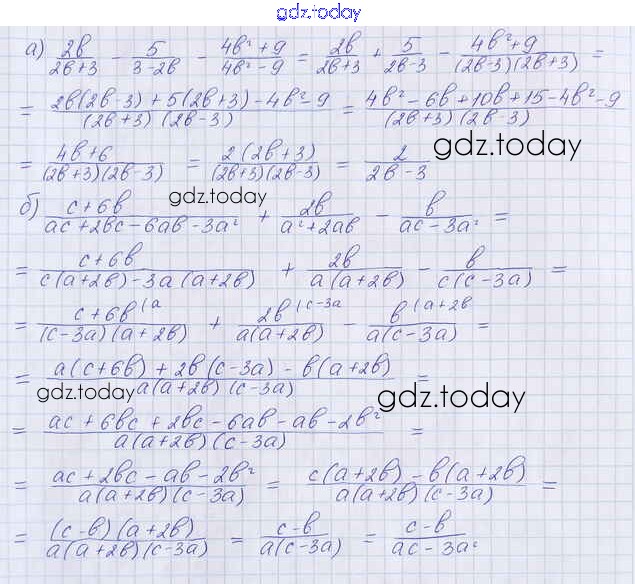 gdz.today
а) 2в/(2в+3) - 5/(3-2в) - (4в²+9)/(4в²-9) = 2в/(2в+3) + 5/(2в-3) - (4в²+9)/((2в-3)(2в+3)) =
= (2в(2в-3)+5(2в+3)-4в²-9)/((2в+3)(2в-3)) = (4в²-6в+10в+15-4в²-9)/((2в+3)(2в-3))
= (4в+6)/((2в+3)(2в-3)) = 2(2в+3)/((2в+3)(2в-3)) = 2/(2в-3)
gdz.today
gdz.today
б) (c+6в)/(ac+2вc-6aв-3a²) + 2в/(a²+2aв) - в/(ac-3a²) =
= (c+6в)/(c(a+2в)-3a(a+2в)) + 2в/(a(a+2в)) - в/(c(c-3a)) =
= (c+6в |a)/((c-3a)(a+2в)) + (2в |c-3a)/(a(a+2в)) - (в |a+2в)/(a(c-3a)) =
= (a(c+6в)+2в(c-3a)-в(a+2в))/(a(a+2в)(c-3a)) =
gdz.today
gdz.today
= (ac+6вc+2вc-6aв-aв-2в²)/(a(a+2в)(c-3a)) =
= (ac+2вc-aв-2в²)/(a(a+2в)(c-3a)) = (c(a+2в)-в(a+2в))/(a(a+2в)(c-3a)) =
= ((c-в)(a+2в))/(a(a+2в)(c-3a)) = (c-в)/(a(c-3a)) = (c-в)/(ac-3a²)